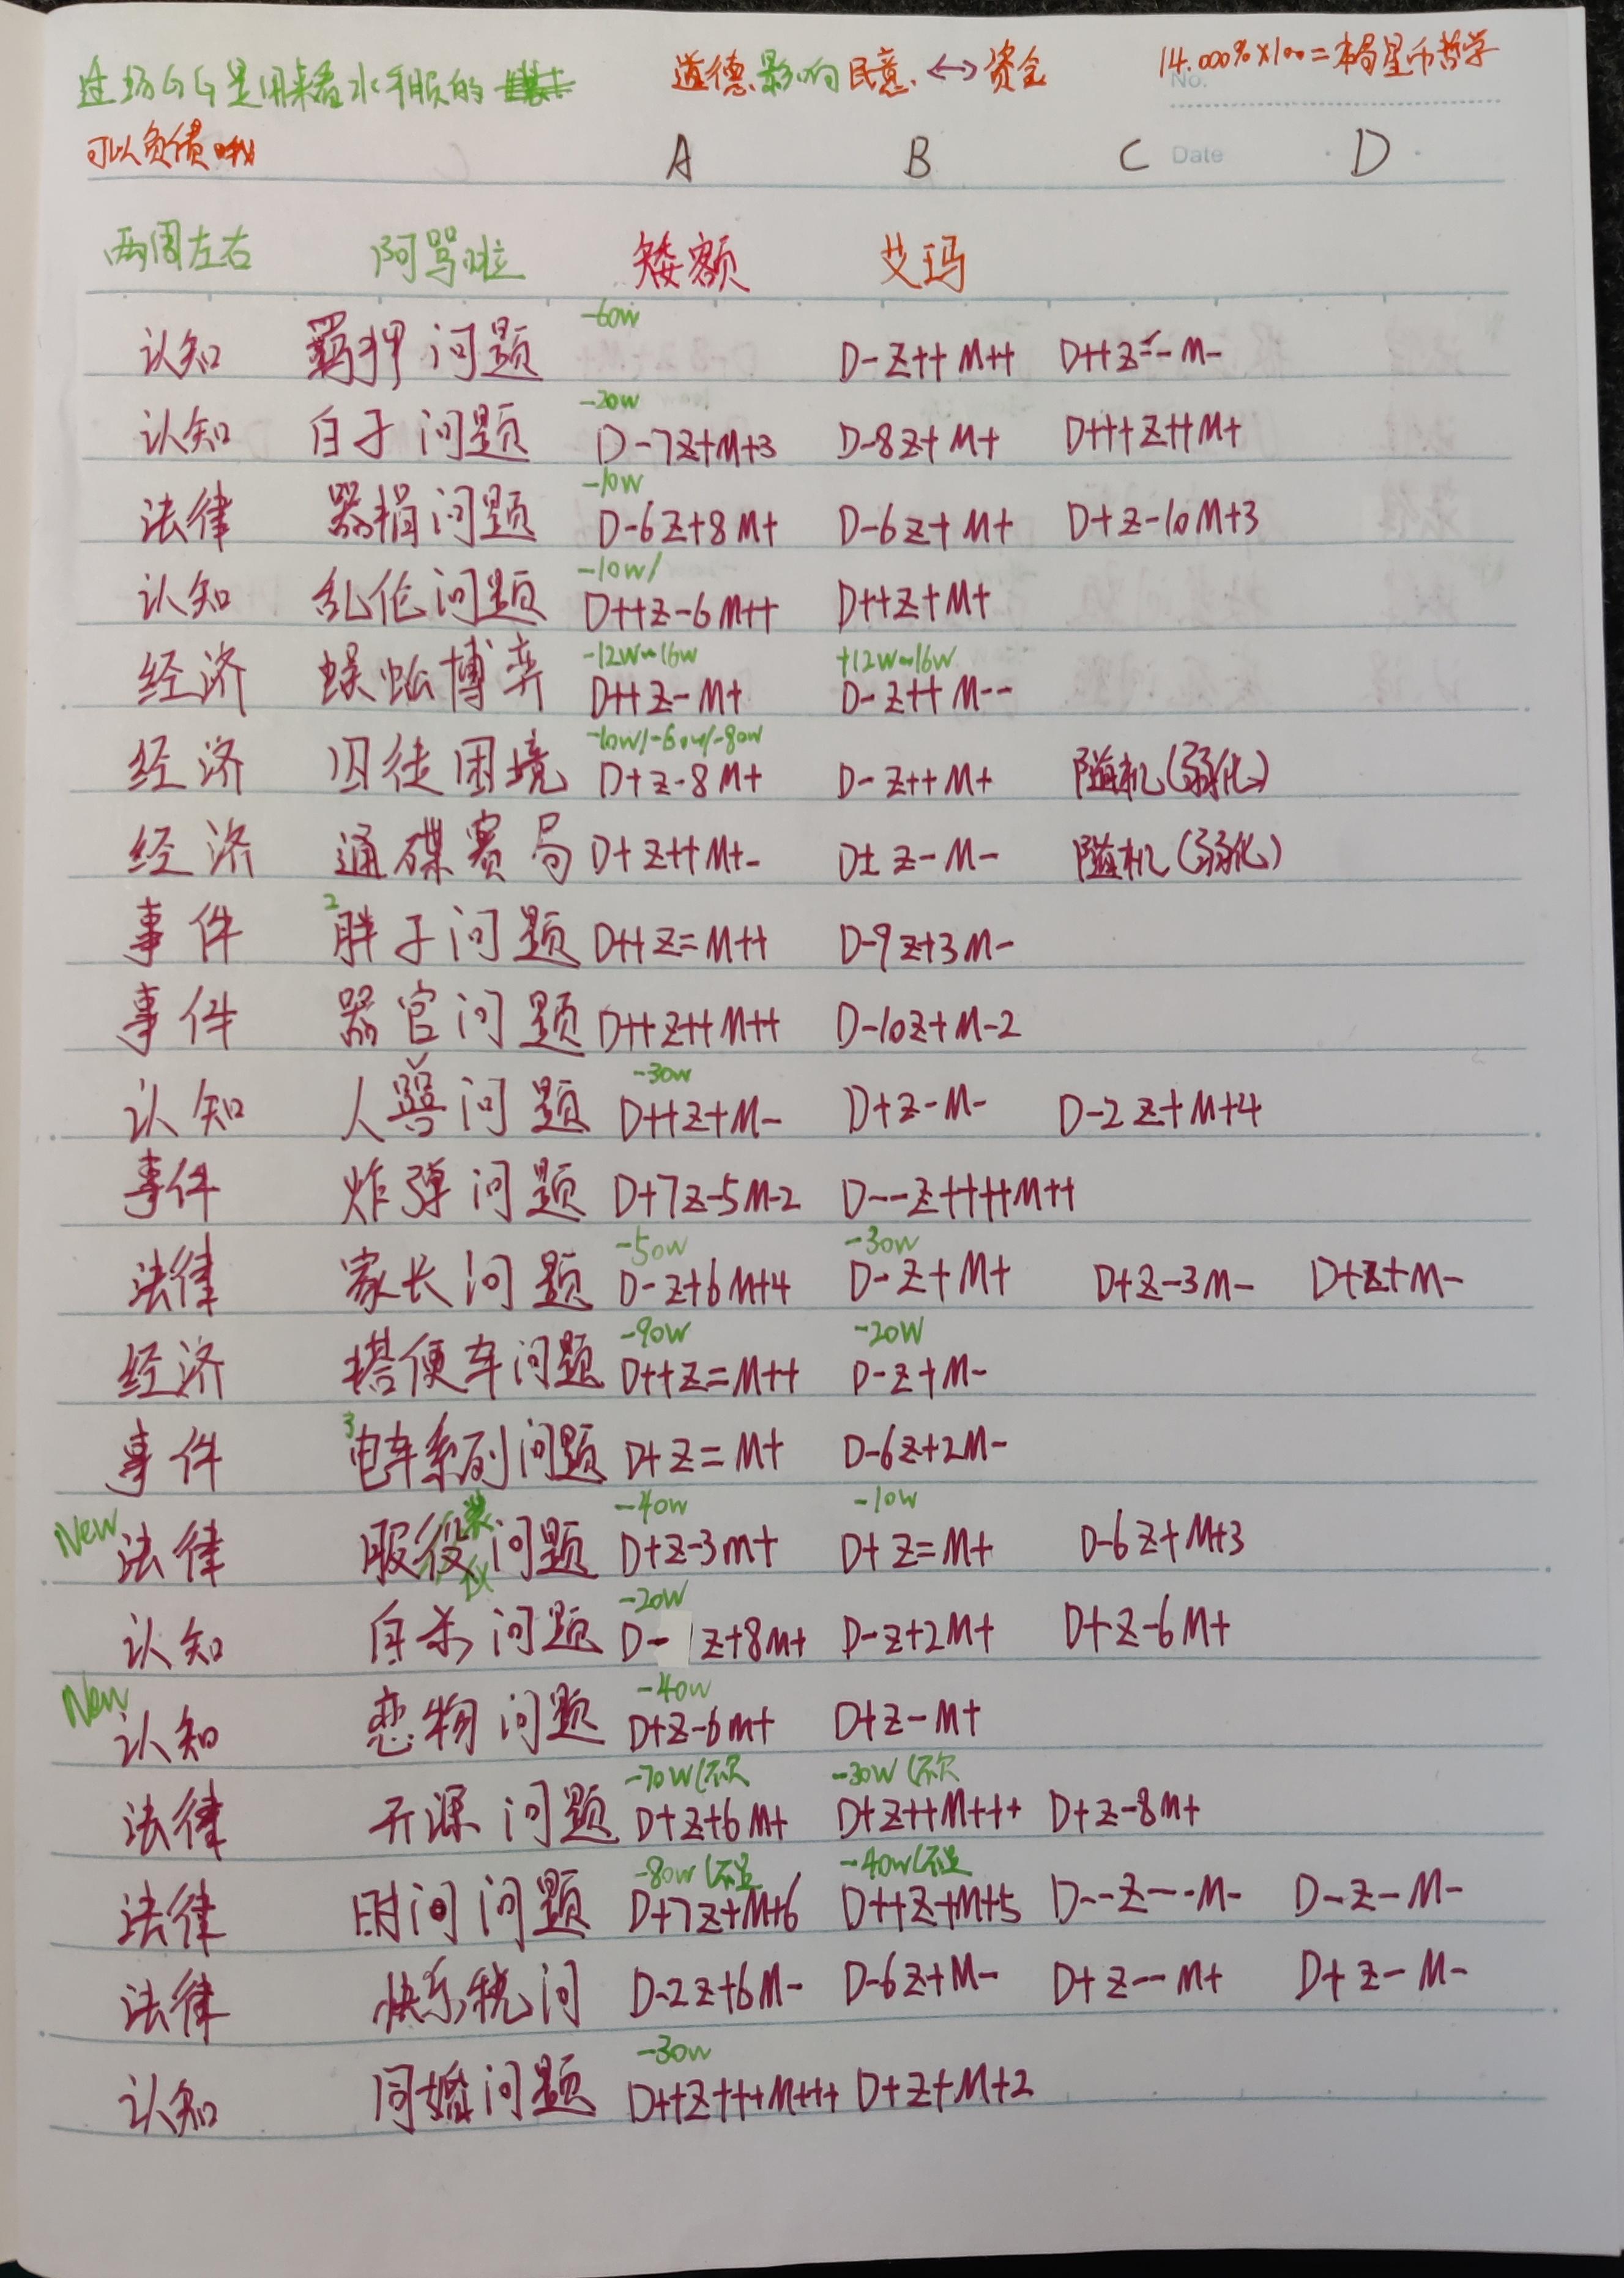 过场CG是用来看水手服的 道德影响民意↔资金 14.000%×100=本局星币哲学
No.
可以负债哦 A B C Date D
两周左右 阿骂啦 矮额 艾玛
-60w
认知 羁押问题 D-Z++M++ D++Z--M-
-20w
认知 白子问题 D-7Z+M+3 D-8Z+M+ D+++Z++M+
-10w
法律 器捐问题 D-6Z+8M+ D-6Z+M+ D+Z-10M+3
-10w/
认知 乱伦问题 D++Z-6M++ D++Z+M+
-12w~16w +12w~16w
经济 蜈蚣博弈 D++Z-M+ D-Z++M--
-10w/-60w/-80w
经济 囚徒困境 D+Z-8M+ D-Z++M+ 随机(弱化)
经济 通碟赛局 D+Z++M+- D±Z-M- 随机(弱化)
事件 2胖子问题 D++Z=M++ D-9Z+3M-
事件 器官问题 D++Z++M++ D-10Z+M-2
-30w
认知 人兽问题 D++Z+M- D+Z-M- D-2Z+M+4
事件 炸弹问题 D+7Z-5M-2 D--Z++++M++
-50w -30w
法律 家长问题 D-Z+6M+4 D-Z+M+ D+Z-3M- D+Z+M-
-90w -20w
经济 搭便车问题 D++Z=M++ D-Z+M-
事件 3电车系列问题 D+Z=M+ D-6Z+2M-
-40w -10w
New 法律 服役问题 D+Z-3M+ D+Z=M+ D-6Z+M+3
-20w
认知 自杀问题 D-Z+8M+ D-Z+2M+ D+Z-6M+
-40w
New 认知 恋物问题 D+Z-6M+ D+Z-M+
-70w(不欠 -30w(不欠
法律 开源问题 D+Z+6M+ D+Z++M+++ D+Z-8M+
-80w -40w
法律 时间问题 D+7Z+M+6 D++Z+M+5 D--Z--M- D-Z-M-
法律 快乐税问 D-2Z+6M- D-6Z+M- D+Z--M+ D+Z-M-
-30w
认知 同婚问题 D++Z+++M+++ D+Z+M+2